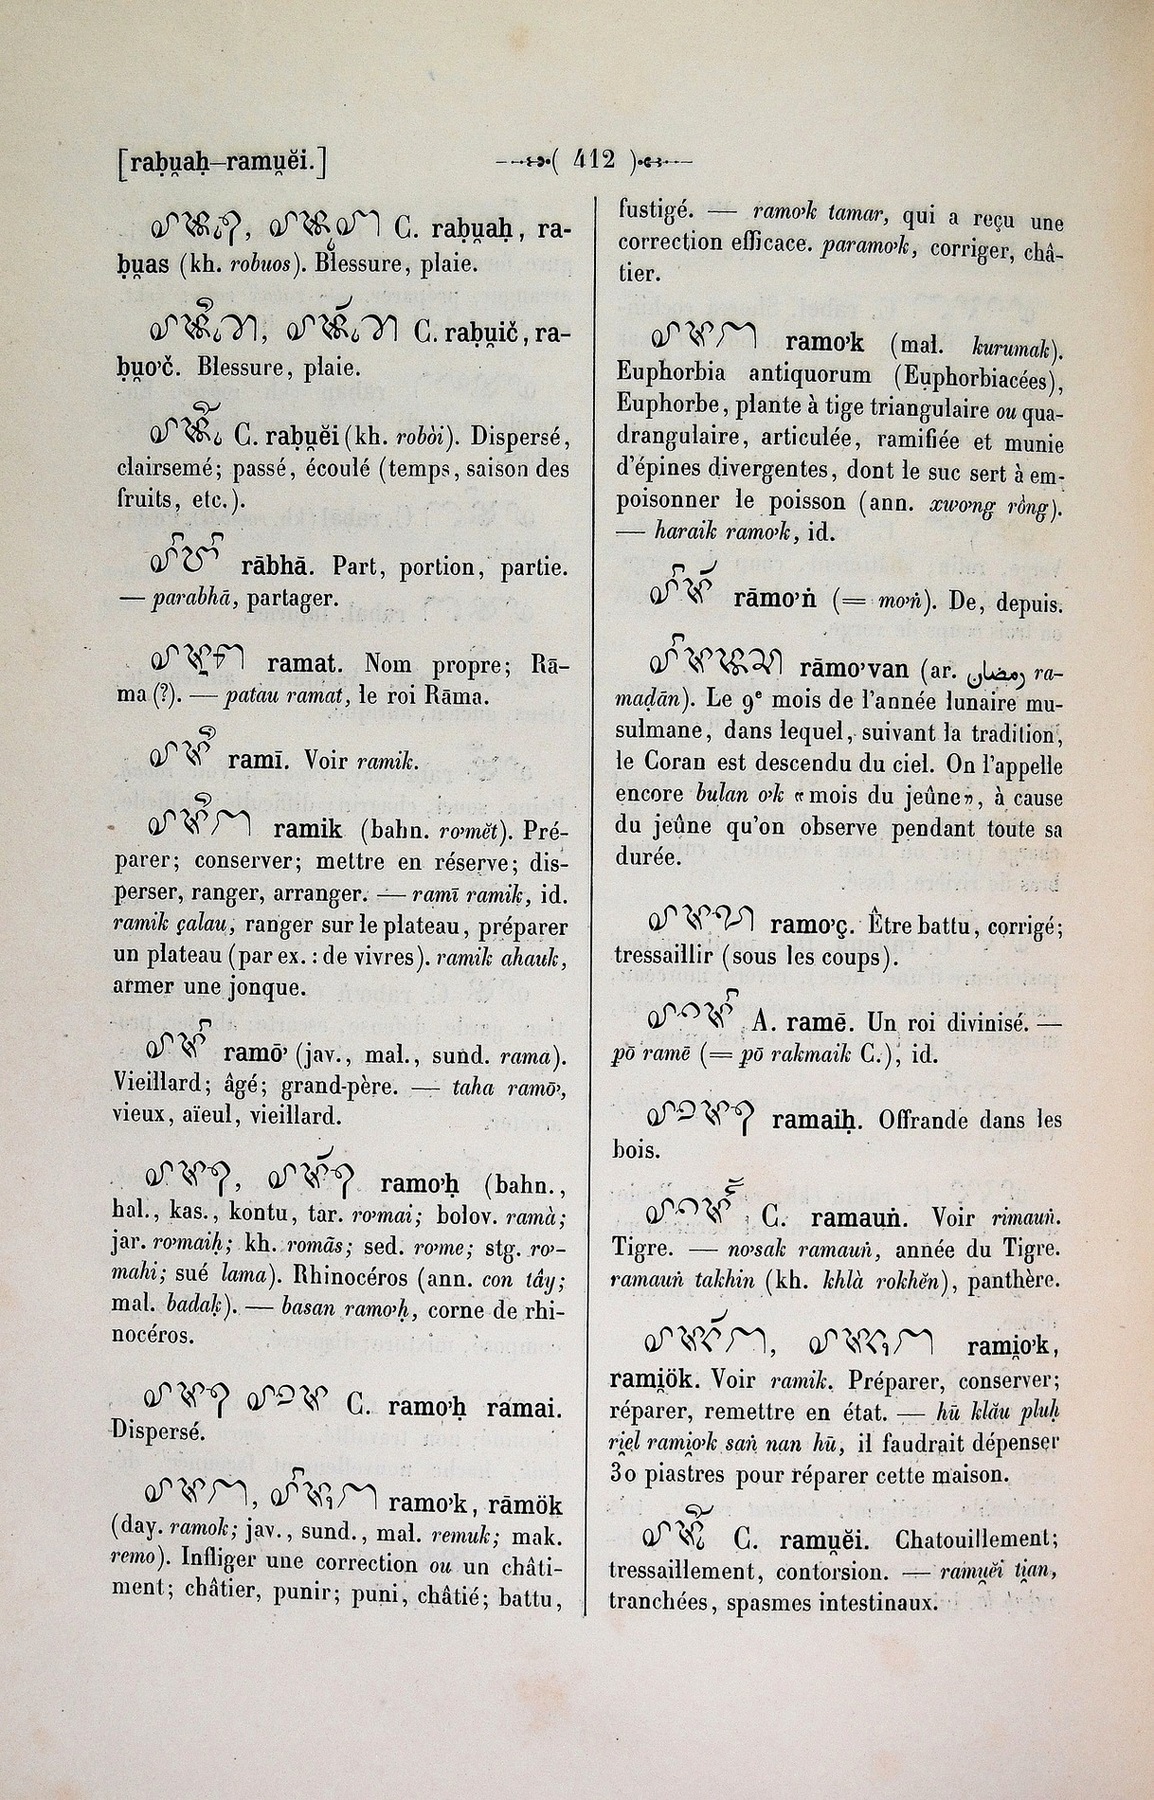 [raḅṷaḥ—ramṷĕi.]
( 412 )
C. raḅṷaḥ, ra-
ḅṷas (kh. robuos). Blessure, plaie.
C. raḅṷič, ra-
ḅṷo’č. Blessure, plaie.
C. raḅṷĕi (kh. robòi). Dispersé,
clairsemé; passé, écoulé (temps, saison des
fruits, etc.).
rābhā. Part, portion, partie.
— parabhā, partager.
ramat. Nom propre; Rā-
ma (?). — patau ramat, le roi Rāma.
ramī. Voir ramik.
ramik (bahn. ro’mĕt). Pré-
parer; conserver; mettre en réserve; dis-
perser, ranger, arranger. — ramī ramik, id.
ramik çalau, ranger sur le plateau, préparer
un plateau (par ex. : de vivres). ramik ahauk,
armer une jonque.
ramō’ (jav., mal., sund. rama).
Vieillard; âgé; grand-père. — taha ramō’,
vieux, aïeul, vieillard.
ramo’ḥ (bahn.,
hal., kas., kontu, tar. ro’mai; bolov. ramà;
jar. ro’maiḥ; kh. romās; sed. ro’me; stg. ro’-
mahi; sué lama). Rhinocéros (ann. con tây;
mal. badaḳ). — basan ramo’ḥ, corne de rhi-
nocéros.
C. ramo’ḥ ramai.
Dispersé.
ramo’k, rāmök
(day. ramok; jav., sund., mal. remuk; mak.
remo). Infliger une correction ou un châti-
ment; châtier, punir; puni, châtié; battu,
fustigé. — ramo’k tamar, qui a reçu une
correction efficace. paramo’k, corriger, châ-
tier.
ramo’k (mal. kurumak).
Euphorbia antiquorum (Euphorbiacées),
Euphorbe, plante à tige triangulaire ou qua-
drangulaire, articulée, ramifiée et munie
d’épines divergentes, dont le suc sert à em-
poisonner le poisson (ann. xwo’ng rồng).
— haraik ramo’k, id.
rāmo’ṅ (= mo’ṅ). De, depuis.
rāmo’van (ar. رمضان ra-
maḍān). Le 9e mois de l’année lunaire mu-
sulmane, dans lequel, suivant la tradition,
le Coran est descendu du ciel. On l’appelle
encore bulan o’k « mois du jeûne », à cause
du jeûne qu’on observe pendant toute sa
durée.
ramo’ç. Être battu, corrigé;
tressaillir (sous les coups).
A. ramē. Un roi divinisé. —
pō ramē (= pō rakmaik C.), id.
ramaiḥ. Offrande dans les
bois.
C. ramauṅ. Voir rimauṅ.
Tigre. — no’sak ramauṅ, année du Tigre.
ramauṅ takhin (kh. khlà rokhĕn), panthère.
rami̭o’k,
rami̭ök. Voir ramik. Préparer, conserver;
réparer, remettre en état. — hū klău pluḥ
ri̭el rami̭o’k saṅ nan hū, il faudrait dépenser
30 piastres pour réparer cette maison.
C. ramṷĕi. Chatouillement;
tressaillement, contorsion. — ramṷĕi ti̭an,
tranchées, spasmes intestinaux.